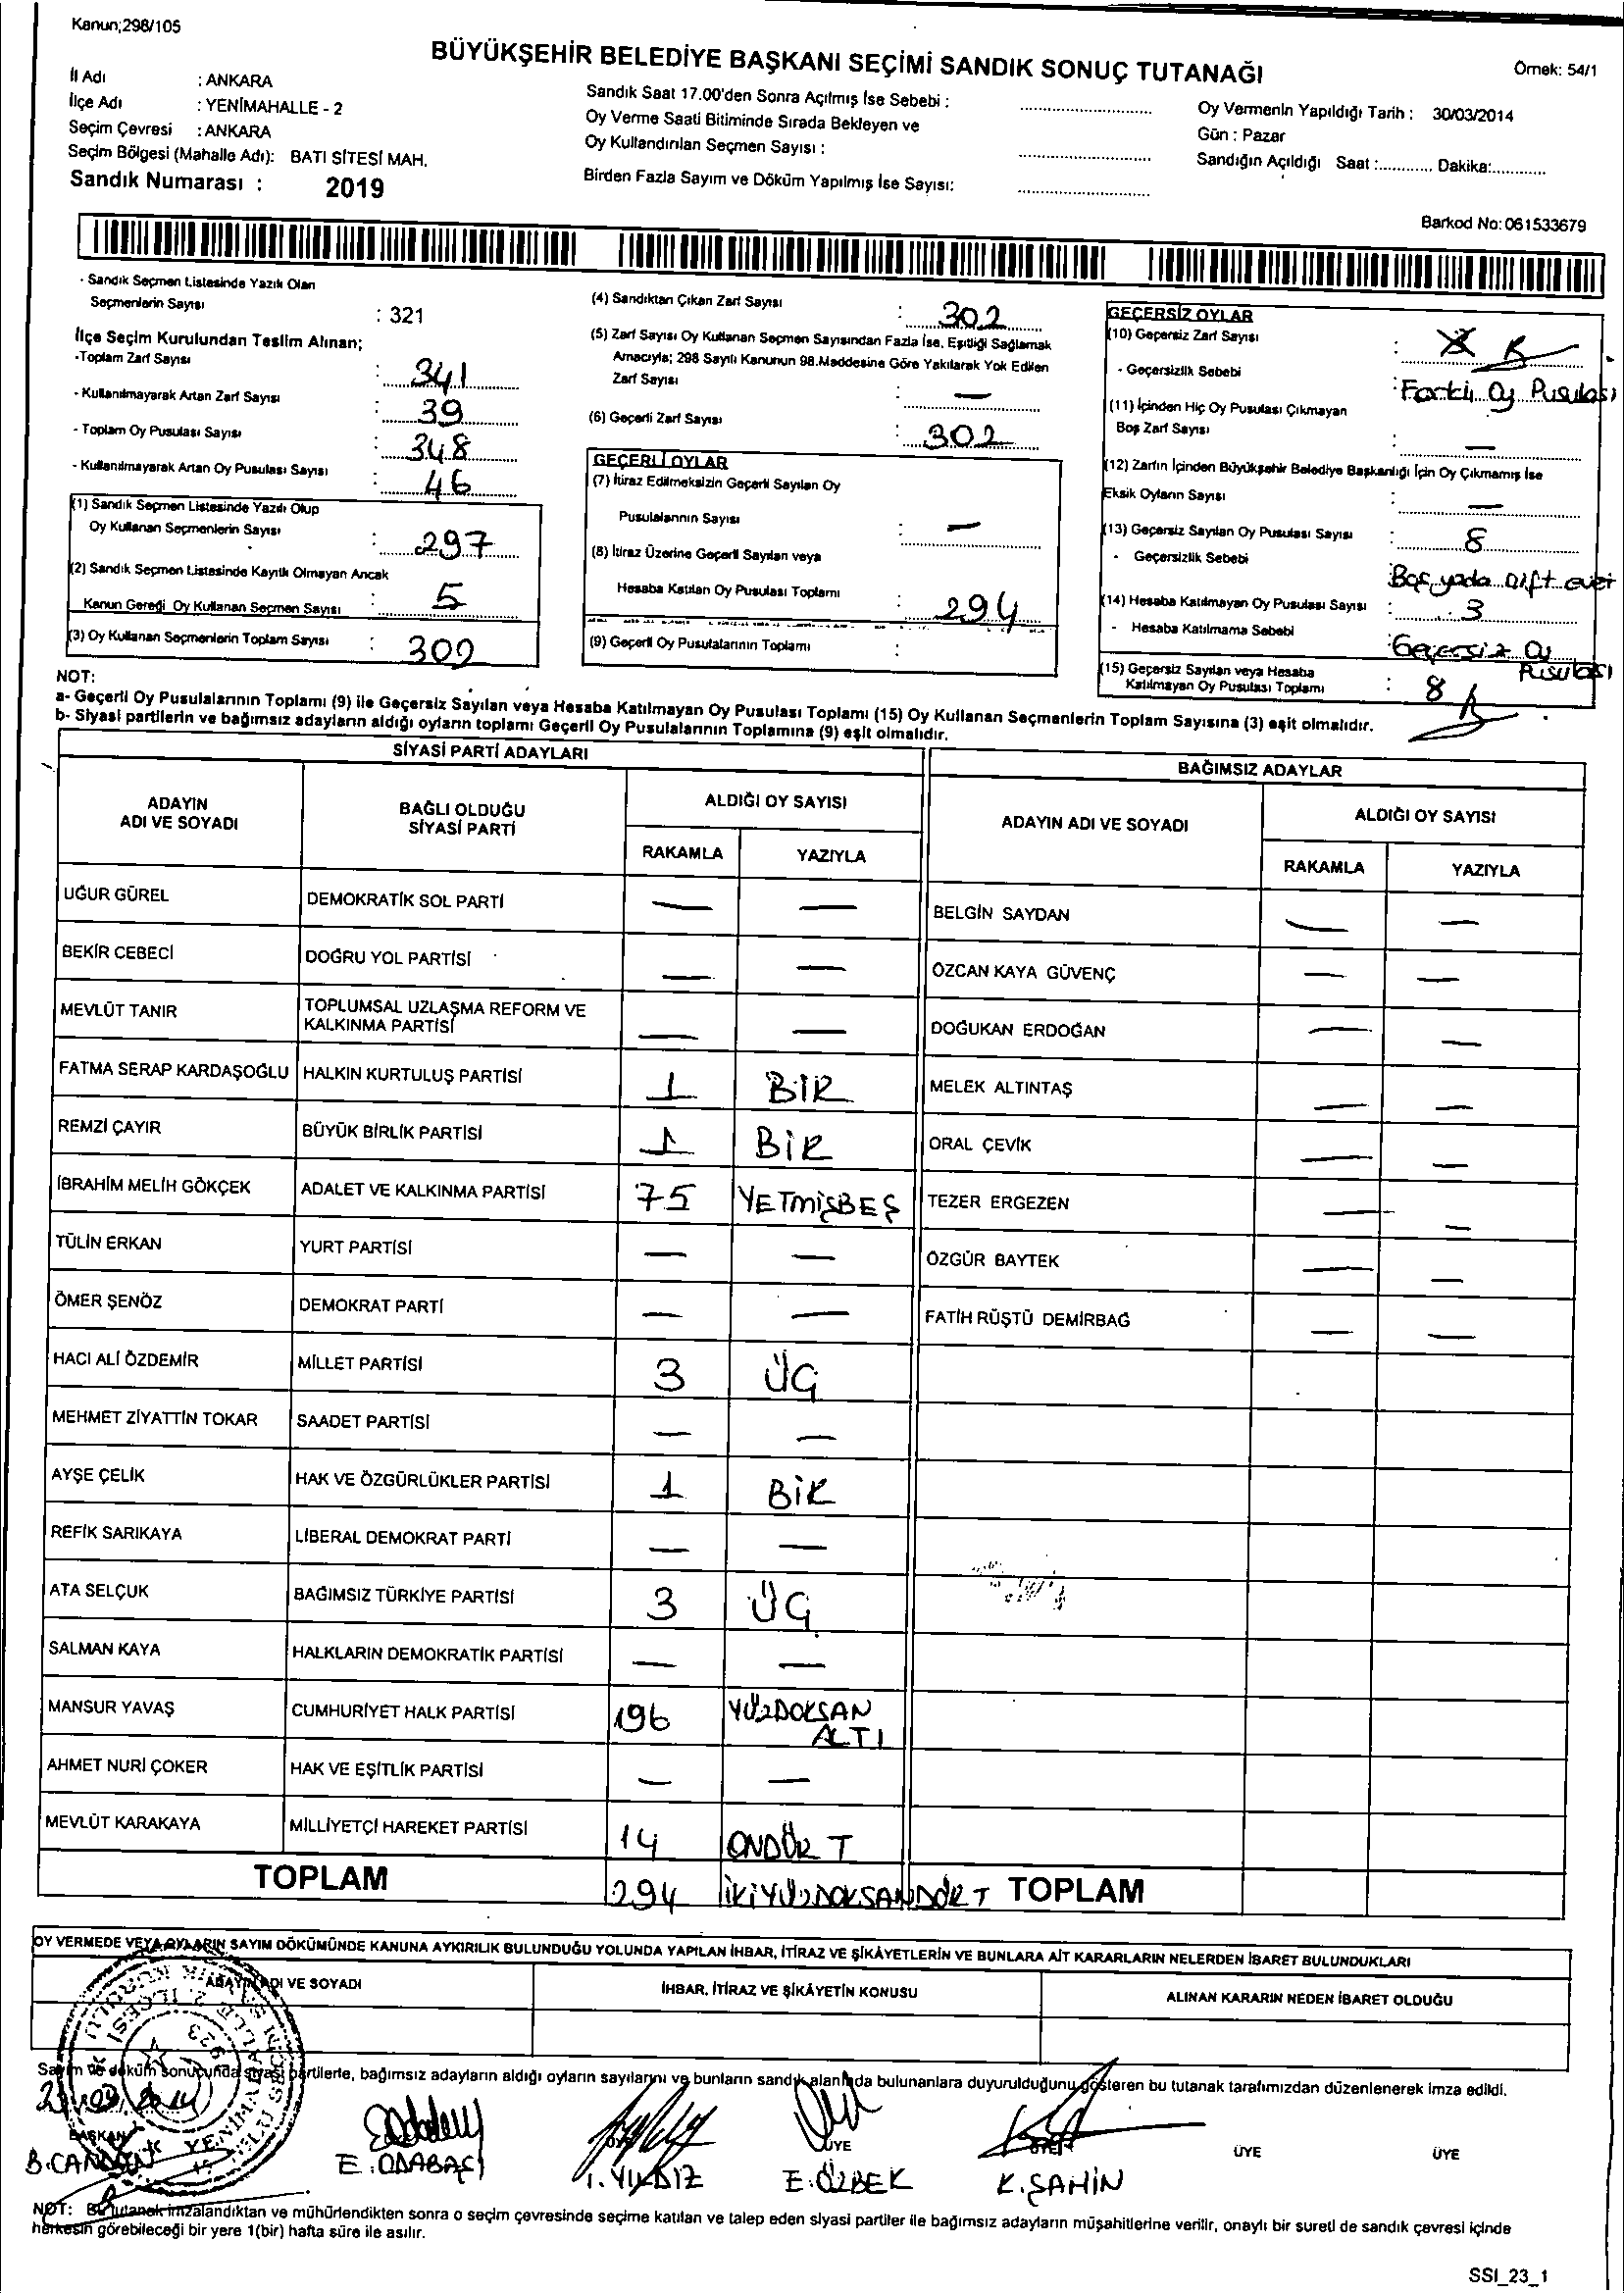 Kanun;298/105
BÜYÜKŞEHİR BELEDİYE BAŞKANI SEÇİMİ SANDIK SONUÇ TUTANAĞI
Örnek: 54/1
İl Adı : ANKARA
İlçe Adı : YENİMAHALLE - 2
Seçim Çevresi : ANKARA
Seçim Bölgesi (Mahalle Adı): BATI SİTESİ MAH.
Sandık Numarası : 2019
Sandık Saat 17.00'den Sonra Açılmış İse Sebebi :
Oy Verme Saati Bitiminde Sırada Bekleyen ve
Oy Kullandırılan Seçmen Sayısı :
Birden Fazla Sayım ve Döküm Yapılmış İse Sayısı:
Oy Vermenin Yapıldığı Tarih : 30/03/2014
Gün : Pazar
Sandığın Açıldığı Saat :............ Dakika:............
Barkod No: 061533679
- Sandık Seçmen Listesinde Yazılı Olan
Seçmenlerin Sayısı : 321
İlçe Seçim Kurulundan Teslim Alınan;
-Toplam Zarf Sayısı : 341
- Kullanılmayarak Artan Zarf Sayısı : 39
- Toplam Oy Pusulası Sayısı : 348
- Kullanılmayarak Artan Oy Pusulası Sayısı : 46
(1) Sandık Seçmen Listesinde Yazılı Olup
Oy Kullanan Seçmenlerin Sayısı : 297
(2) Sandık Seçmen Listesinde Kayıtlı Olmayan Ancak
Kanun Gereği Oy Kullanan Seçmen Sayısı : 5
(3) Oy Kullanan Seçmenlerin Toplam Sayısı : 302
(4) Sandıktan Çıkan Zarf Sayısı : 302
(5) Zarf Sayısı Oy Kullanan Seçmen Sayısından Fazla İse, Eşitliği Sağlamak
Amacıyla; 298 Sayılı Kanunun 98.Maddesine Göre Yakılarak Yok Edilen
Zarf Sayısı : —
(6) Geçerli Zarf Sayısı : 302
GEÇERLİ OYLAR
(7) İtiraz Edilmeksizin Geçerli Sayılan Oy
Pusulalarının Sayısı : —
(8) İtiraz Üzerine Geçerli Sayılan veya
Hesaba Katılan Oy Pusulası Toplamı : 294
(9) Geçerli Oy Pusulalarının Toplamı :
GEÇERSİZ OYLAR
(10) Geçersiz Zarf Sayısı :
- Geçersizlik Sebebi : Farklı Oy Pusulası
(11) İçinden Hiç Oy Pusulası Çıkmayan
Boş Zarf Sayısı : —
(12) Zarfın İçinden Büyükşehir Belediye Başkanlığı İçin Oy Çıkmamış İse
Eksik Oyların Sayısı : —
(13) Geçersiz Sayılan Oy Pusulası Sayısı : 8
- Geçersizlik Sebebi : Boş yada çift evet
(14) Hesaba Katılmayan Oy Pusulası Sayısı : 3
- Hesaba Katılmama Sebebi : Geçersiz Oy
Pusulası
(15) Geçersiz Sayılan veya Hesaba
Katılmayan Oy Pusulası Toplamı : 8
NOT:
a- Geçerli Oy Pusulalarının Toplamı (9) ile Geçersiz Sayılan veya Hesaba Katılmayan Oy Pusulası Toplamı (15) Oy Kullanan Seçmenlerin Toplam Sayısına (3) eşit olmalıdır.
b- Siyasi partilerin ve bağımsız adayların aldığı oyların toplamı Geçerli Oy Pusulalarının Toplamına (9) eşit olmalıdır.
SİYASİ PARTİ ADAYLARI
ADAYIN ADI VE SOYADI
BAĞLI OLDUĞU SİYASİ PARTİ
ALDIĞI OY SAYISI
RAKAMLA YAZIYLA
UĞUR GÜREL DEMOKRATİK SOL PARTİ — —
BEKİR CEBECİ DOĞRU YOL PARTİSİ — —
MEVLÜT TANIR TOPLUMSAL UZLAŞMA REFORM VE
KALKINMA PARTİSİ — —
FATMA SERAP KARDAŞOĞLU HALKIN KURTULUŞ PARTİSİ 1 BİR
REMZİ ÇAYIR BÜYÜK BİRLİK PARTİSİ 1 BİR
İBRAHİM MELİH GÖKÇEK ADALET VE KALKINMA PARTİSİ 75 YETMİŞBEŞ
TÜLİN ERKAN YURT PARTİSİ — —
ÖMER ŞENÖZ DEMOKRAT PARTİ — —
HACI ALİ ÖZDEMİR MİLLET PARTİSİ 3 ÜÇ
MEHMET ZİYATTİN TOKAR SAADET PARTİSİ — —
AYŞE ÇELİK HAK VE ÖZGÜRLÜKLER PARTİSİ 1 BİR
REFİK SARIKAYA LİBERAL DEMOKRAT PARTİ — —
ATA SELÇUK BAĞIMSIZ TÜRKİYE PARTİSİ 3 ÜÇ
SALMAN KAYA HALKLARIN DEMOKRATİK PARTİSİ — —
MANSUR YAVAŞ CUMHURİYET HALK PARTİSİ 196 YÜZDOKSAN
ALTI
AHMET NURİ ÇOKER HAK VE EŞİTLİK PARTİSİ — —
MEVLÜT KARAKAYA MİLLİYETÇİ HAREKET PARTİSİ 14 ONDÖRT
TOPLAM 294 İKİYÜZDOKSANDÖRT
BAĞIMSIZ ADAYLAR
ADAYIN ADI VE SOYADI
ALDIĞI OY SAYISI
RAKAMLA YAZIYLA
BELGİN SAYDAN — —
ÖZCAN KAYA GÜVENÇ — —
DOĞUKAN ERDOĞAN — —
MELEK ALTINTAŞ — —
ORAL ÇEVİK — —
TEZER ERGEZEN — —
ÖZGÜR BAYTEK — —
FATİH RÜŞTÜ DEMİRBAĞ — —
TOPLAM
OY VERMEDE VEYA OYLARIN SAYIM DÖKÜMÜNDE KANUNA AYKIRILIK BULUNDUĞU YOLUNDA YAPILAN İHBAR, İTİRAZ VE ŞİKÂYETLERİN VE BUNLARA AİT KARARLARIN NELERDEN İBARET BULUNDUKLARI
ADAYIN ADI VE SOYADI
İHBAR, İTİRAZ VE ŞİKÂYETİN KONUSU
ALINAN KARARIN NEDEN İBARET OLDUĞU
Sayım ve döküm sonucunda siyasi partilerle, bağımsız adayların aldığı oyların sayılarını ve bunların sandık alanında bulunanlara duyurulduğunu gösteren bu tutanak tarafımızdan düzenlenerek imza edildi.
BAŞKAN ÜYE ÜYE ÜYE ÜYE
E. ODABAŞI İ. YILDIZ E. ÖZBEK K. ŞAHİN
NOT: Bu tutanak imzalandıktan ve mühürlendikten sonra o seçim çevresinde seçime katılan ve talep eden siyasi partiler ile bağımsız adayların müşahitlerine verilir, onaylı bir sureti de sandık çevresi içinde
herkesin görebileceği bir yere 1(bir) hafta süre ile asılır.
SSI_23_1